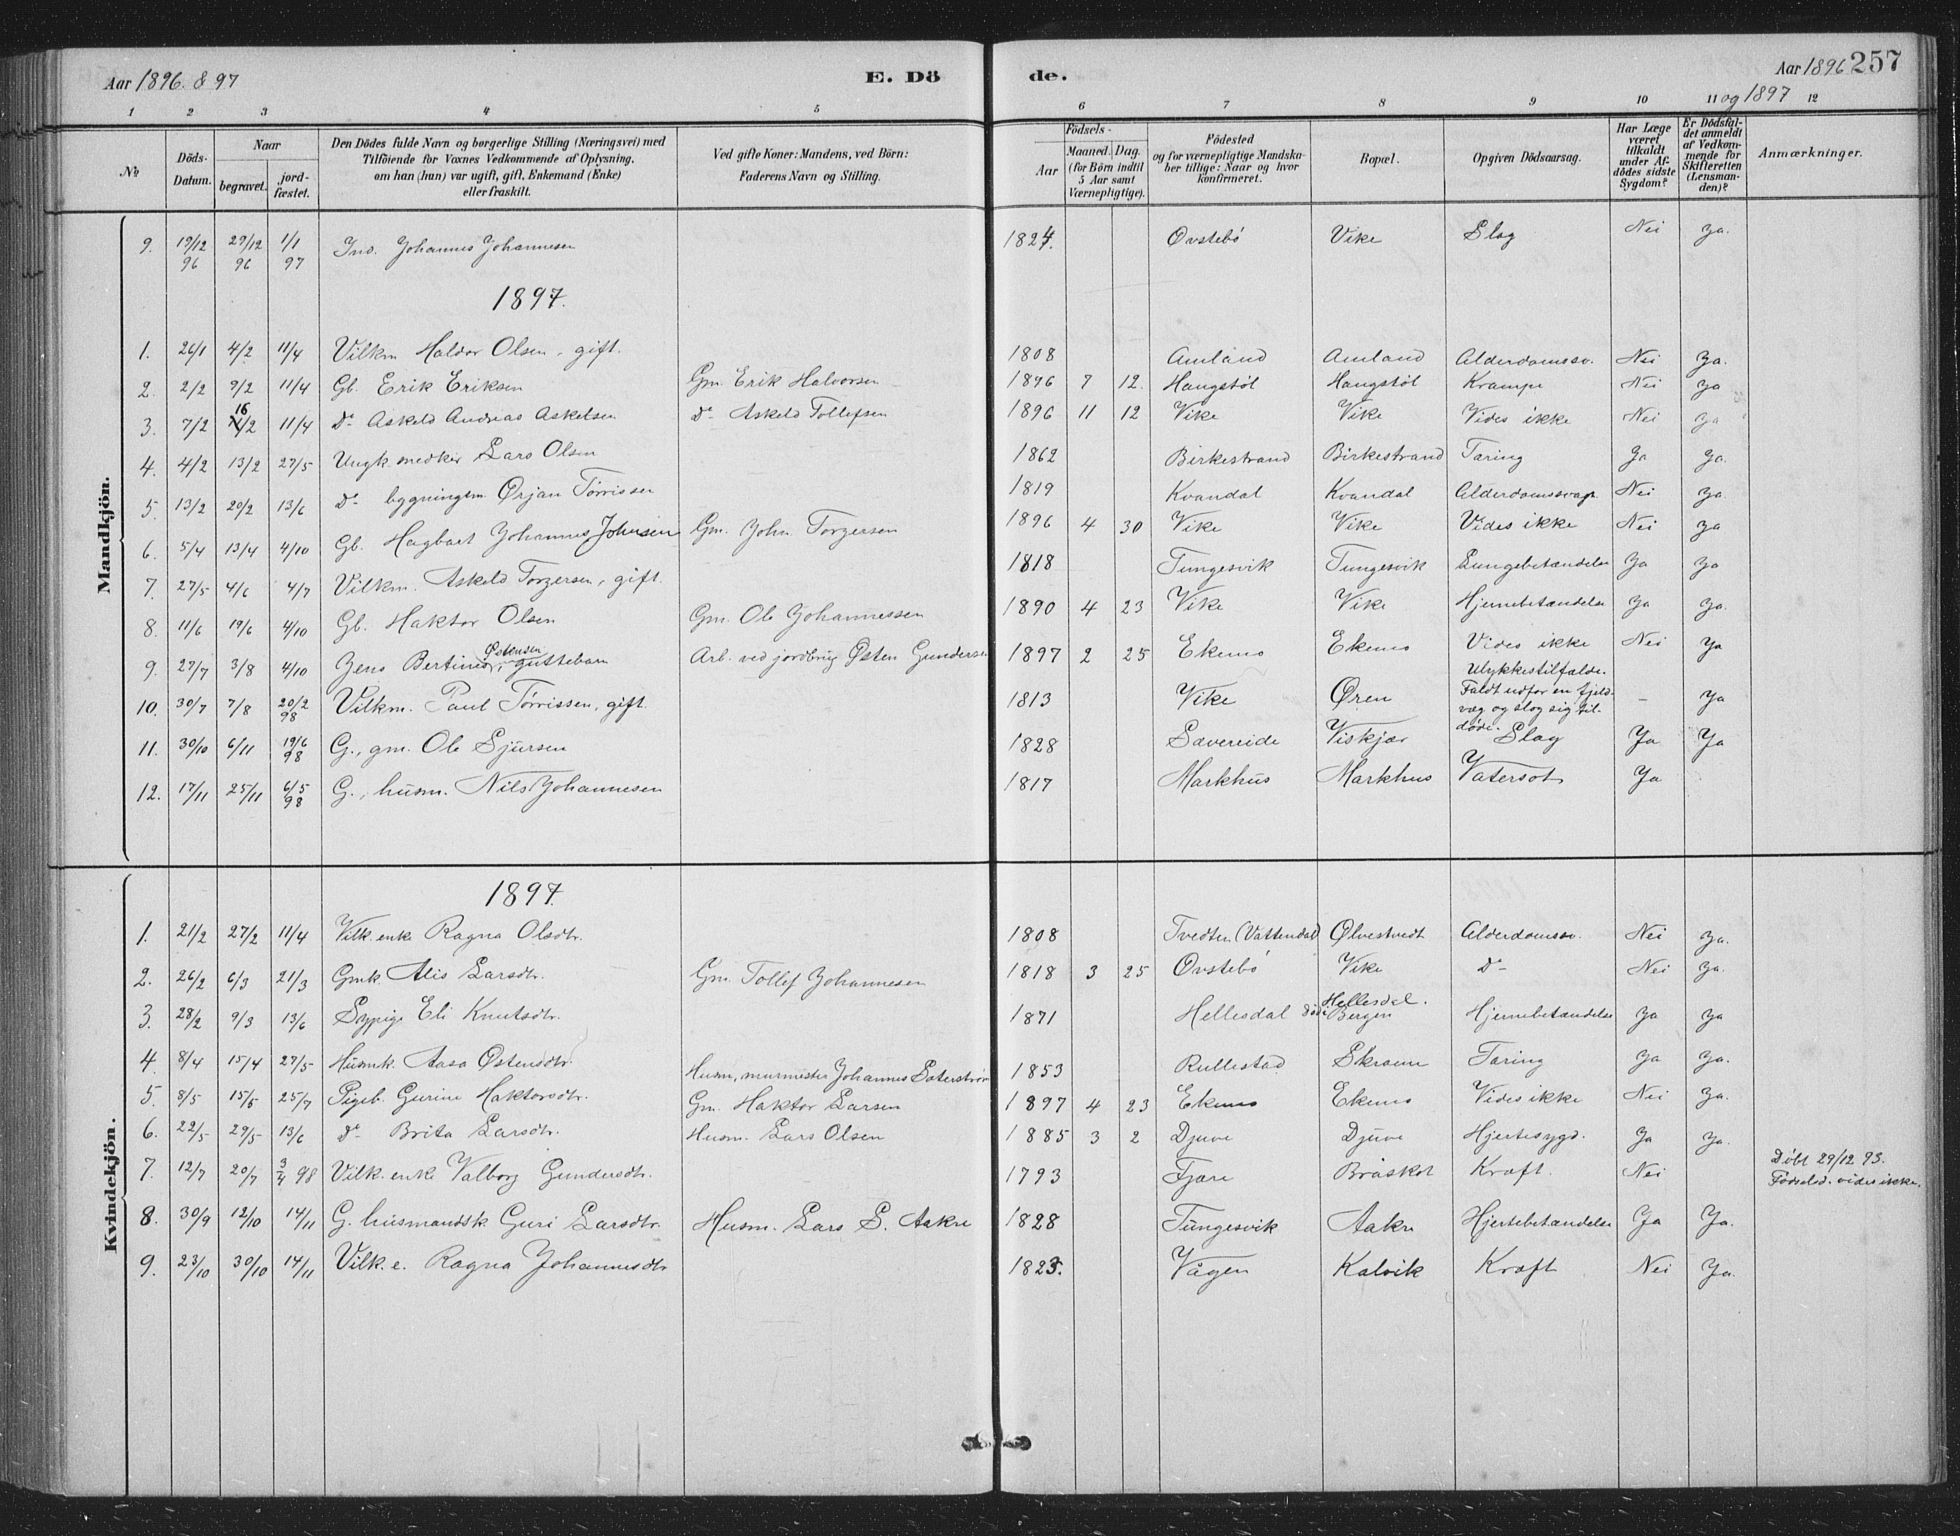 Aar 1896 & 97 E. Dö de. Aar 1896 257
og 1897
1 2 3 4 5 6 7 8 9 10 11 12
№ Döds-Datum. Naar begravet. jord-fæstet. Den Dödes fulde Navn og borgerlige Stilling (Næringsvei) med Tilföiende for Voxnes Vedkommende af Oplysning, om han (hun) var ugift, gift, Enkemand (Enke) eller fraskilt. Ved gifte Koner: Mandens, ved Börn: Faderens Navn og Stilling. Födsels- Aar Maaned. Dag. (for Börn indtil 5 Aar samt Værnepligtige). Födested og for værnepligtige Mandskaber tillige: Naar og hvor konfirmeret. Bopæl. Opgiven Dödsaarsag. Har Læge været tilkaldt under Afdödes sidste Sygdom? Er Dödsfaldet anmeldt af Vedkommende for Skifteretten (Lensmanden)? Anmærkninger.
Mandkjön.
9. 19/12 96 29/12 96 1/1 97 Ind. Johannes Johannesen 1824 Ovstebö Vike Slag Nei Ja.
1897.
1. 26/1 4/2 11/4 Vilkm Haldor Olsen, gift. 1808 Amland Amland Alderdomssv. Nei Ja.
2. 2/2 9/2 11/4 Gb. Erik Eriksen Gm. Erik Halvorsen 1896 7 12. Haugstøl Haugstøl Krampe Nei Ja
3. 7/2 16/2 11/4 Do Askeld Andreas Askelsen Do Askeld Tollefsen 1896 11 12 Vike Vike Vides ikke Nei Ja
4. 4/2 13/2 27/5 Ungk. snedker Lars Olsen 1862 Birkestrand Birkestrand Tæring Ja Ja.
5. 13/2 20/2 13/6 Do bygningsm. Ørjan Tørrissen 1819 Kvandal Kvandal Alderdomssvagh Nei Ja
6. 5/4 13/4 4/10 Gb. Hagbart Johannes Johnsen Gm. John Torgersen 1896 4 30 Vike Vike Vides ikke Nei Ja
7. 27/5 4/6 4/7 Vilkm. Askeld Torgersen, gift. 1818 Tungesvik Tungesvik Lungebetændelse Ja Ja
8. 11/6 19/6 4/10 Gb. Haktor Olsen Gm. Ole Johannessen 1890 4 23 Vike Vike Hjernebetændelse Ja Ja.
9. 27/7 3/8 4/10 Jens Bertines Østensen, guttebarn Arb. ved jordbrug Østen Gundersen 1897 2 25 Ekemo Ekemo Vides ikke Nei Ja
10. 30/7 7/8 20/2 98 Vilkm. Paul Tørrissen, gift. 1813 Vike Øren Ulykkestilfælde. Faldt udfor en fjeldvæg og slog sig tildøde. - Ja
11. 30/10 6/11 19/6 98 G., gm. Ole Sjursen 1828 Sævereide Viskjær Slag Ja Ja
12. 17/11 25/11 6/5 98 G., husm. Nils Johannesen 1817 Markhus Markhus Vatersot Ja
Kvindekjön.
1897.
1. 21/2 27/2 11/4 Vilk. enke Ragna Olsdtr. 1808 Tvedten (Vattendal) Ølvestvedt Alderdomssv. Nei Ja.
2. 26/2 6/3 21/3 Gmk. Alis Larsdtr. Gm. Tollef Johannesen 1818 3 25 Ovstebö Vike Do Nei Ja.
3. 28/2 9/3 13/6 Sypige Eli Knutsdtr. 1871 Hellesdal Hellesdal. død i Bergen Hjernebetændelse Ja Ja
4. 8/4 15/4 27/5 Husmk. Aasa Østensdtr. Husm., murmester Johannes Soterstrøm 1853 Rullestad Skromme Tæring Ja Ja.
5. 8/5 15/5 25/7 Pigeb. Gurine Haktorsdtr. Gm. Haktor Larsen 1897 4 23 Ekemo Ekemo Vides ikke Nei Ja.
6. 22/5 29/5 13/6 Do Brita Larsdtr. Husm. Lars Olsen 1885 3 2 Djuve Djuve Hjertesygd. Ja Ja.
7. 12/7 20/7 3/4 98 Vilk. enke Valborg Gundersdtr. 1793 Fjære Bråskot Kræft. Nei Døbt 29/12 93. Fødselsd. vides ikke.
8. 30/9 12/10 14/11 G. husmandsk. Guri Larsdtr. Husm. Lars S. Aakre 1828 Tungesvik Aakre Hjertebetændelse Ja Ja.
9. 23/10 30/10 14/11 Vilk. e. Ragna Johannesdtr 1823. Vågen Kalvik Kræft Nei Ja.